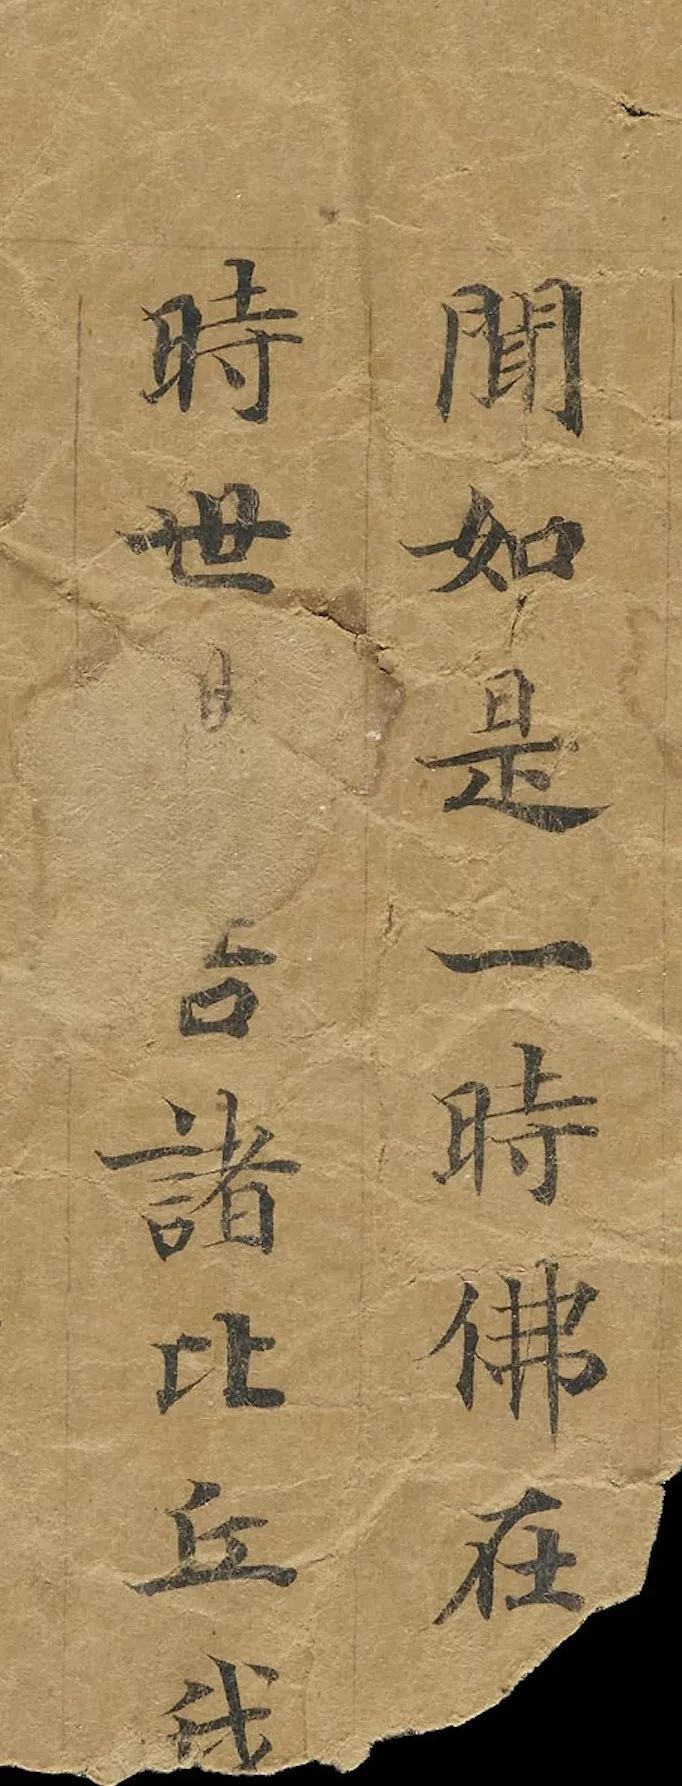 聞如是一時佛在
時世告諸比丘我